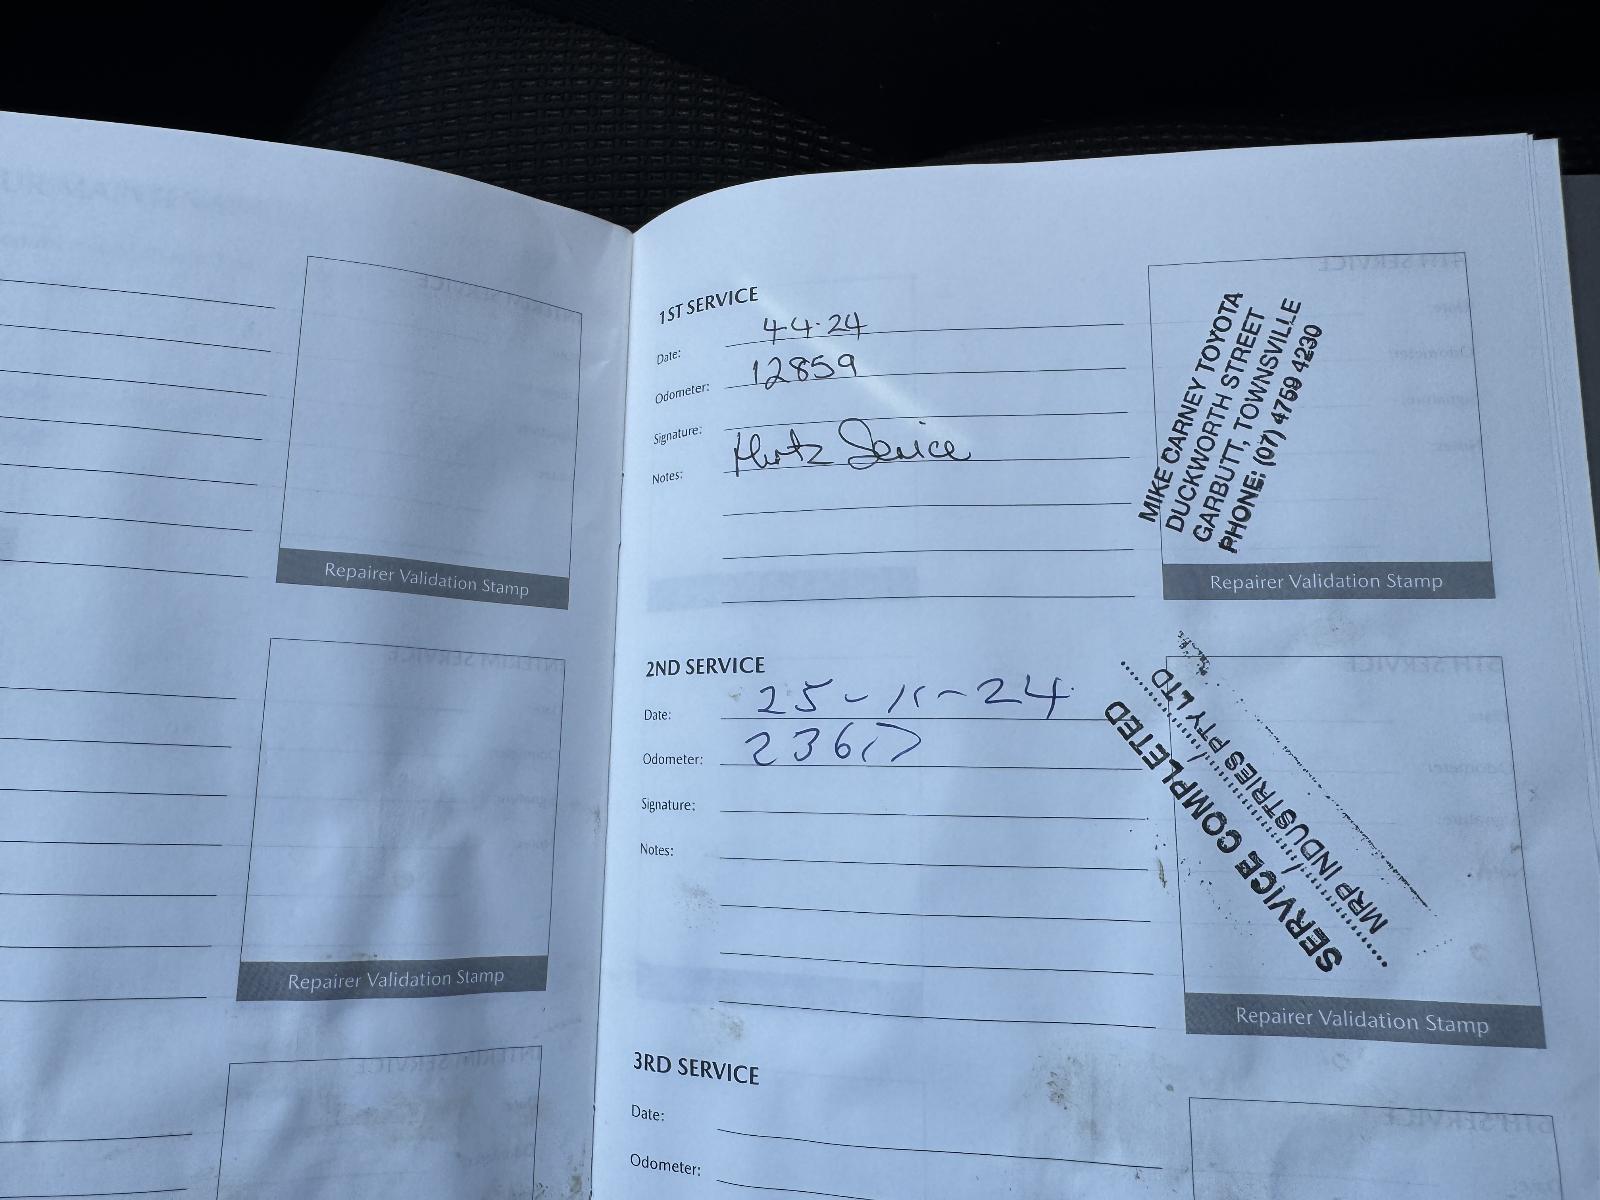 1ST SERVICE
Date: 4·4·24
Odometer: 12859
Signature:
Notes: Hertz Service
MIKE CARNEY TOYOTA
DUCKWORTH STREET
GARBUTT, TOWNSVILLE
PHONE: (07) 4759 4230
Repairer Validation Stamp
2ND SERVICE
Date: 25-11-24
Odometer: 23617
Signature:
Notes:
SERVICE COMPLETED
MRP INDUSTRIES PTY LTD
Repairer Validation Stamp
3RD SERVICE
Date:
Odometer:
Repairer Validation Stamp
Repairer Validation Stamp